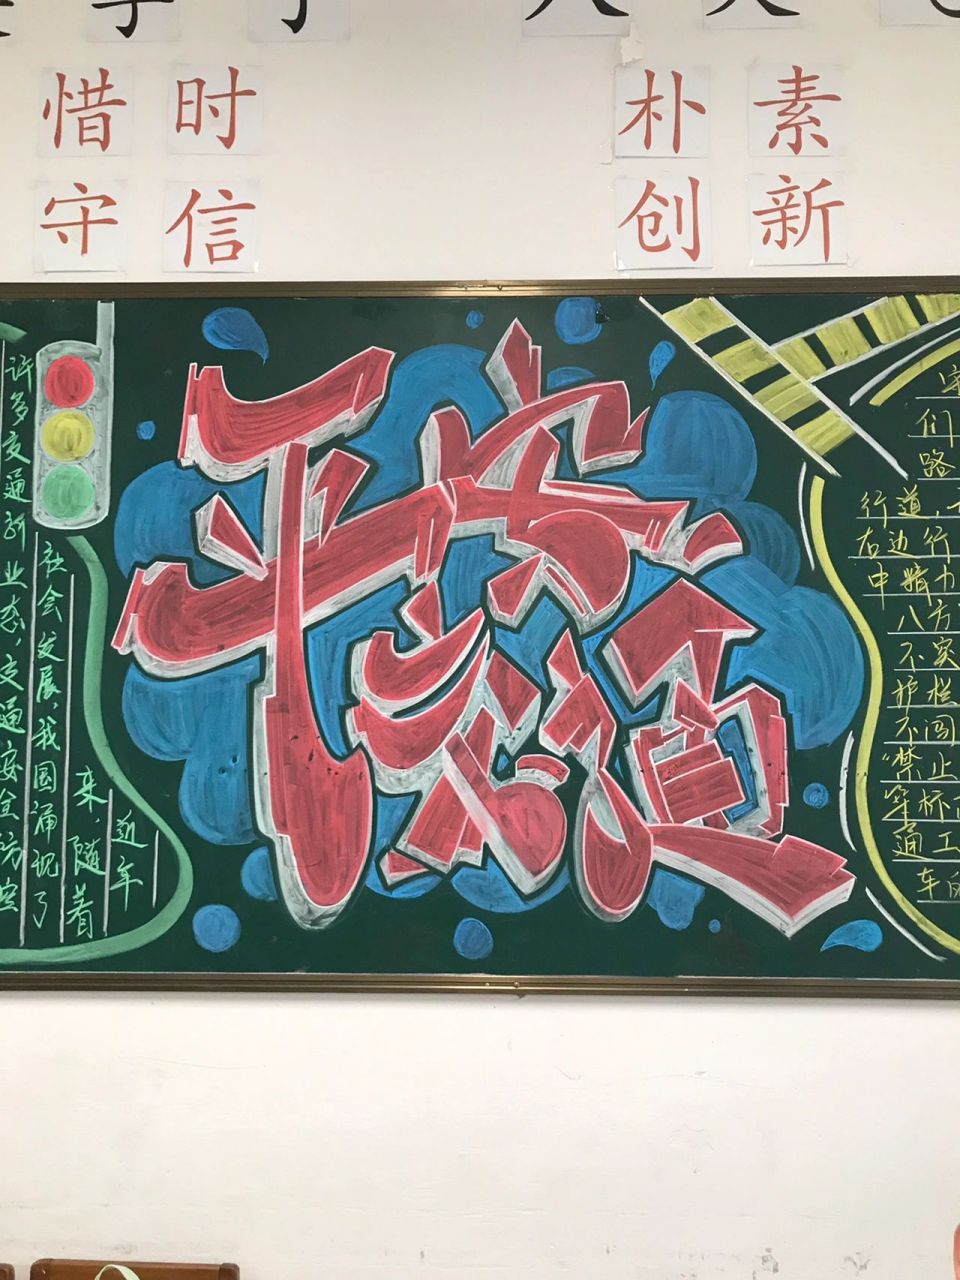 惜时 朴素
守信 创新
平安
交通
近年
来,随着
社会发展,我国涌现了
许多交通新业态,交通安全
们
路
行道,
右边行
中精力
八方
不突
护栏
不闯
“禁止
标
通工
车